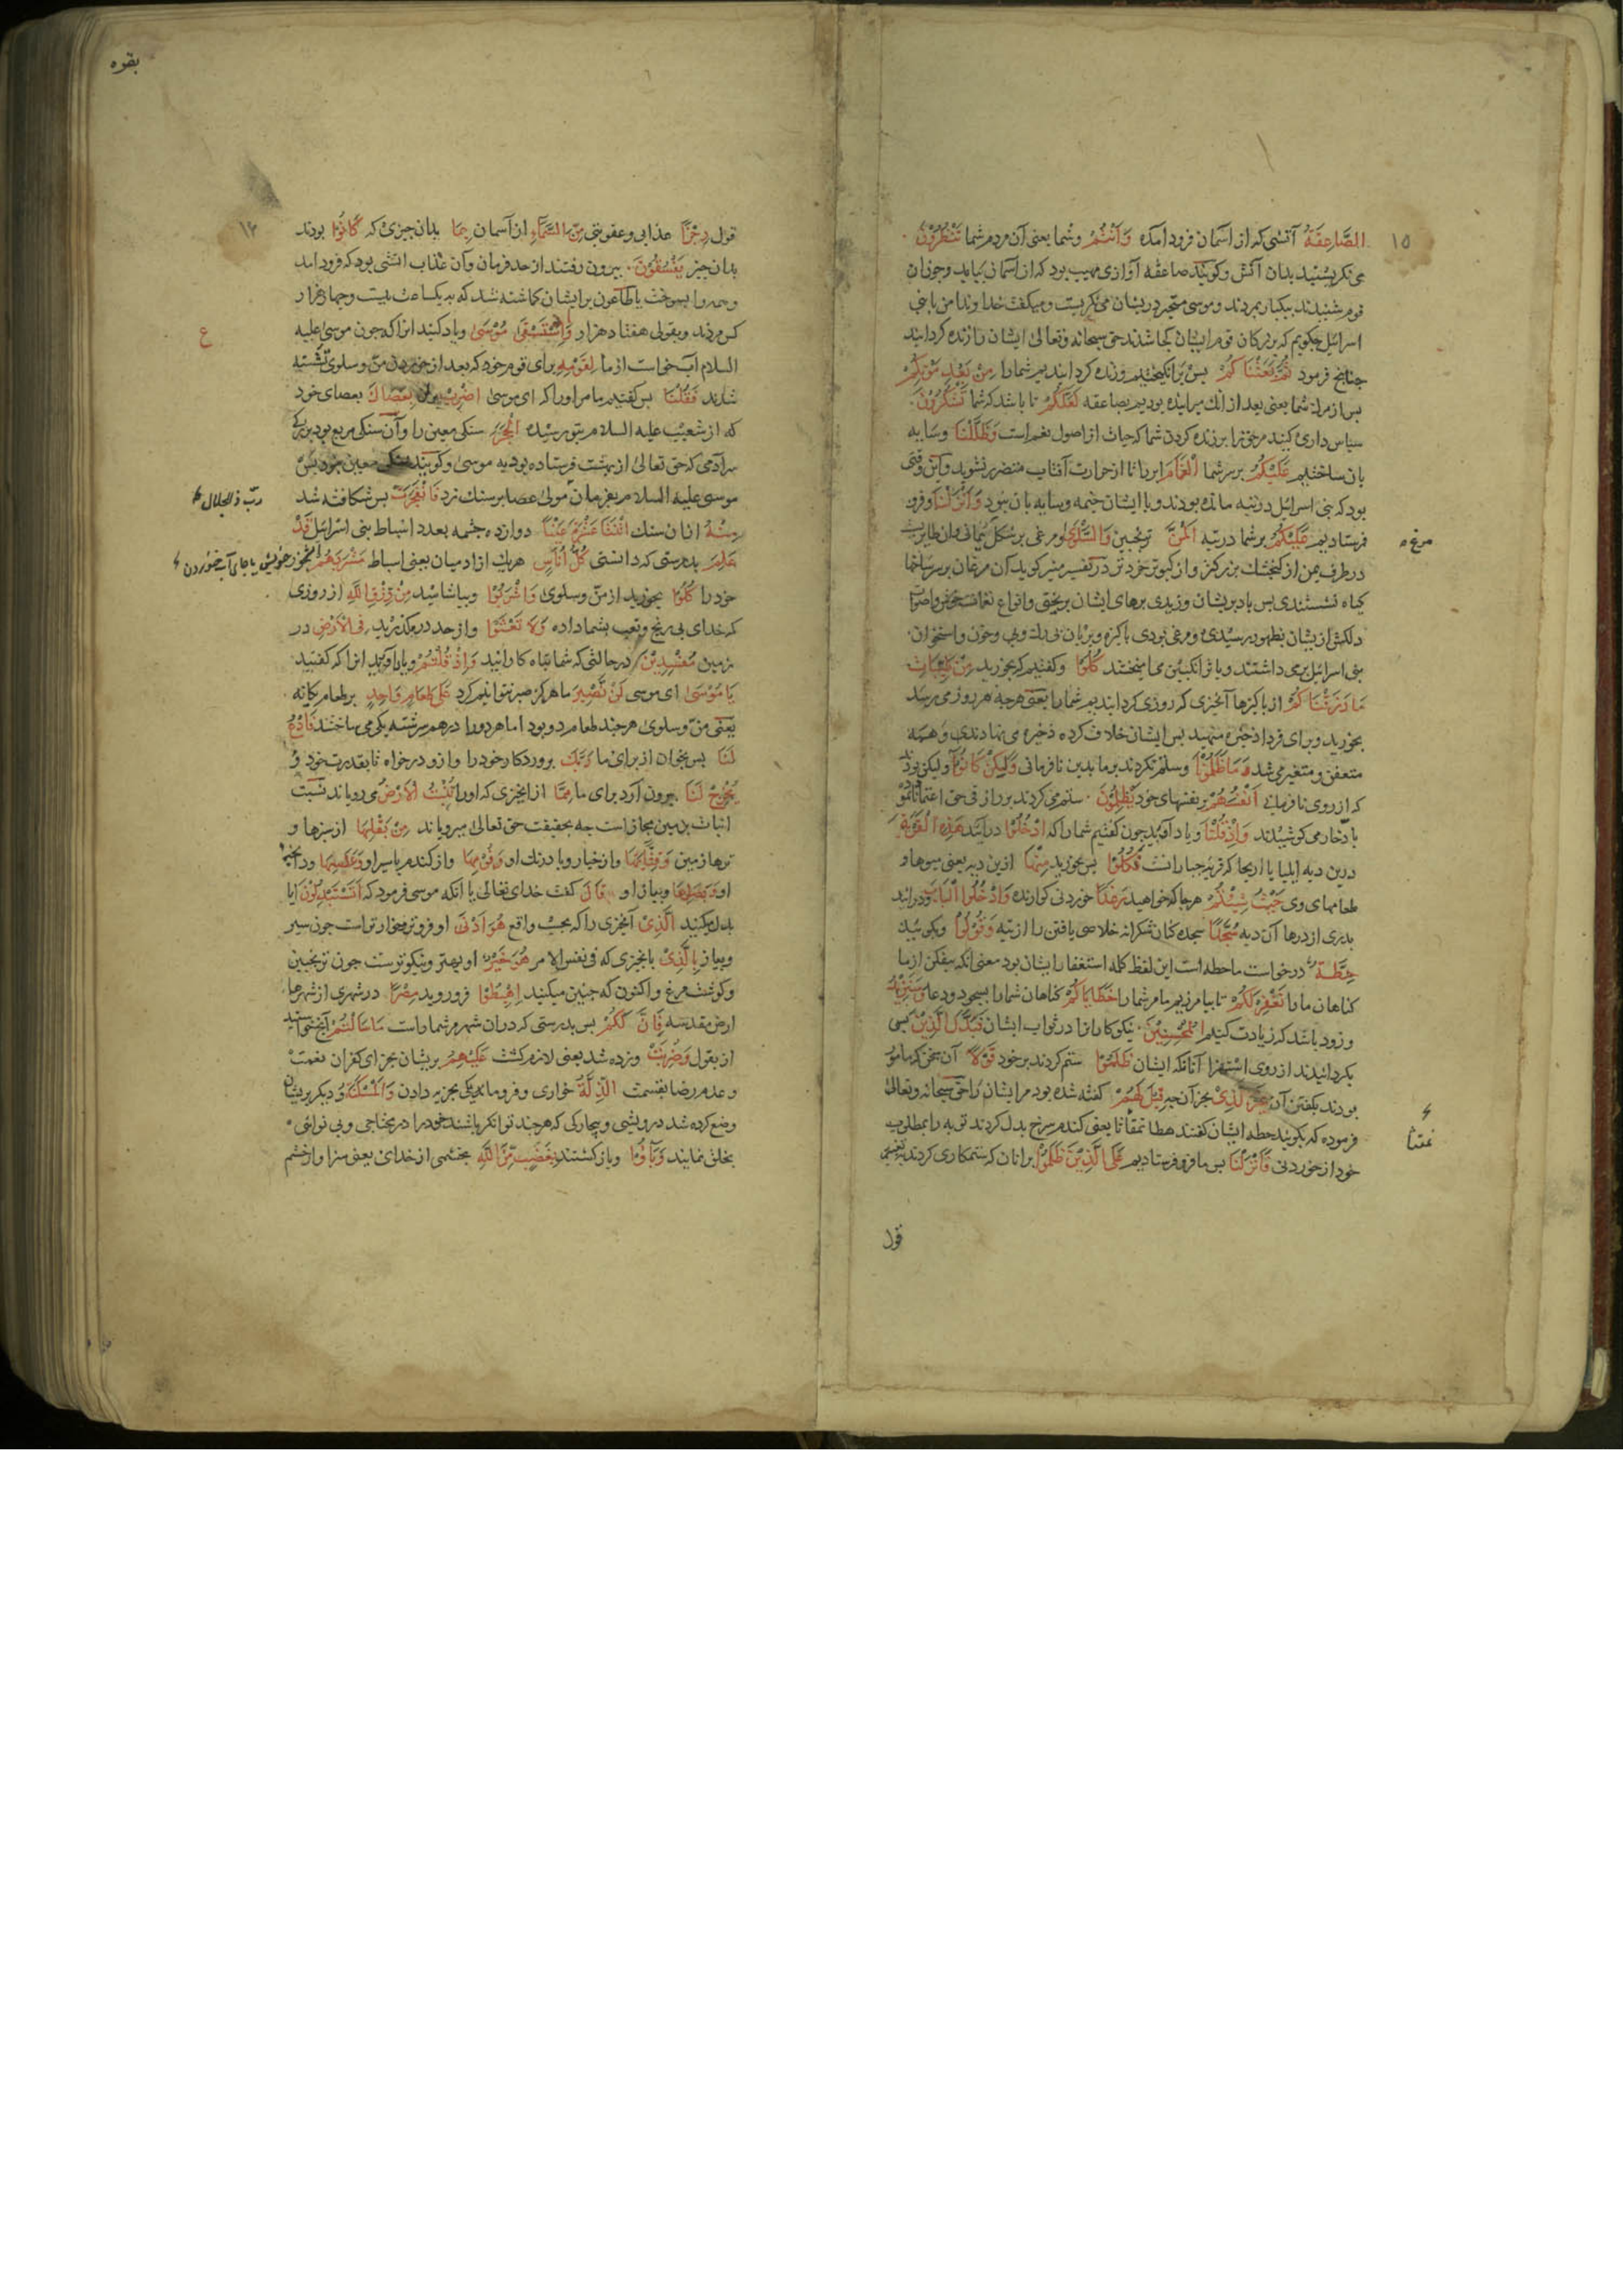 ١٥
الصَّاعِقَةُ آتشی که از آسمان فرود آمده وَاَنْتُمْ وشما یعنی آن مردم شما تَنْظُرُوْنَ
می نکریستید بدان آتش وکویند صاعقه آوازی مهیب بود که از آسمان بیاید وچون آن
قوم شنیدند بیکبار بمردند وموسی متحیر دریشان می نکریست ومیکفت خداوندا من با بنی
اسرائیل چکویم که بزرکان قوم ایشان کجا شدند حق سبحانه وتعالی ایشان را زنده کردانید
چنانچ فرمود ثُمَّ بَعَثْنَاکُمْ پس برانکیختیم وزنده کردانیدیم شمارا مِنْ بَعْدِ مَوْتِکُمْ
پس از مردن شما یعنی بعد از آنک میرانیده بودیم بصاعقه لَعَلَّکُمْ تا باشد که شما تَشْکُرُوْنَ
سپاس داری کنید مرحق را برزنده کردن شما که حیات از اصول نعم است وَظَلَّلْنَا وسایه
بان ساختیم عَلَیْکُمُ بر سر شما الْغَمَامَ ابر را تا از حرارت آفتاب متضرر نشوید واین وقتی
بود که بنی اسرائیل در تیه مانده بودند وبا ایشان خیمه وسایه بان نبود وَاَنْزَلْنَا وفرو
فرستادیم عَلَیْکُمُ بر شما در تیه الْمَنَّ ترنجبین وَالسَّلْوٰی ومرغی بر شکل سمانی وآن طایریست
مرغ ه
در طرف یمن از کنجشک بزرکتر واز کبوتر خردتر در تفسیر منیر کوید آن مرغان بر سر شاخها
کیاه نشستندی پس باد بریشان وزیدی پرهای ایشان بریختی وانواع نغمات خوش واصوات
دلکش از یشان بظهور رسیدی ومرغی بودی پاکیزه وبریان بی رک وپی وخون واستخوان
بنی اسرائیل بر می داشتند وبا ترانکبین می آمیختند کُلُوْا وکفتیم که بخورید مِنْ طَیِّبَاتِ
مَا رَزَقْنَاکُمْ از پاکیزها آنچیزی که روزی کردانیدیم شمارا یعنی هرچه هر روز می رسد
بخورید وبرای فردا ذخیره منهید پس ایشان خلاف کرده ذخیره می نهادندی وهمه
متعفن ومتغیر می شد وَمَا ظَلَمُوْنَا وستم نکردند بر ما بدین نافرمانی وَلٰکِنْ کَانُوْا ولیکن بودند
که از روی نافرمانی اَنْفُسَهُمْ بر نفسهای خود یَظْلِمُوْنَ ستم می کردند بر رزاقی حق اعتماد نانموده
باذخار می کوشیدند وَاِذْ قُلْنَا ویاد آورید چون کفتیم شمارا که ادْخُلُوْا درآیید هٰذِهِ الْقَرْیَةَ
درین دیه ایلیا یا اریحا که قریه جبارانست فَکُلُوْا پس بخورید مِنْهَا ازین دیه یعنی میوها و
طعامهای وی حَیْثُ شِئْتُمْ هرجا که خواهید رَغَدًا خوردنی کوارنده وَادْخُلُوا الْبَابَ ودر آیید
بدری از درها آن دیه سُجَّدًا سجده کنان شکرانه خلاصی یافتن را از تیه وَقُوْلُوْا وبکویید
حِطَّةٌ درخواست ما حطه است این لفظ کلمه استغفار ایشان بود معنی آنکه بیفکن از ما
کناهان مارا نَغْفِرْ لَکُمْ تا بیامرزیم ما مر شمارا خَطَایَاکُمْ کناهان شمارا بسجود ودعا وَسَنَزِیْدُ
وزود باشد که زیادت کنیم الْمُحْسِنِیْنَ نیکو کارانرا در ثواب ایشان فَبَدَّلَ الَّذِیْنَ پس
بکردانیدند از روی استهزا آنانکه ایشان ظَلَمُوْا ستم کردند بر خود قَوْلًا آن سخن که مامور
بودند بکفتن آن غَیْرَ الَّذِیْ بجز آن چیز قِیْلَ لَهُمْ کفته شده بود مر ایشان را حق سبحانه وتعالی
فرموده که بکویند حطه ایشان کفتند هطا سمقاثا یعنی کندم سرخ بدل کردند توبه را بمطلوب
خود از خوردنی فَاَنْزَلْنَا پس ما فرو فرستادیم عَلَی الَّذِیْنَ ظَلَمُوْا بر آنان که ستمکاری کردند
قول
بقره
١٢
قول رِجْزًا عذابی وعقوبتی مِّنَ السَّمَآءِ از آسمان بِمَا بدان چیزی که کَانُوْا بودند
بدان چیز یَفْسُقُوْنَ بیرون رفتند از حد فرمان وآن عذاب آتشی بود که فرود آمد
وهمه را بسوخت یا طاعون برایشان کماشته شد که بیکساعت بیست وچهار هزار
کس مردند وبقولی هفتاد هزار وَاِذِ اسْتَسْقٰی مُوْسٰی ویاد کنید آنرا که چون موسی علیه
ع
السلام آب خواست از ما لِقَوْمِهٖ برای قوم خود که بعد از خوردن من وسلوی تشنه
شدند فَقُلْنَا پس کفتیم ما مر اورا که ای موسی اضْرِبْ بزن بِعَصَاکَ بعصای خود
که از شعیب علیه السلام بتو رسیده الْحَجَرَ سنکی معین را وآن سنکی مربع بود بزرکی
سر آدمی که حق تعالی از بهشت فرستاده بود به موسی وکویند سنکی معین نبود پس
موسی علیه السلام بفرمان مولی عصا بر سنک زد فَانْفَجَرَتْ پس شکافته شد
ربّ ذوالجلال
مِنْهُ از آن سنک اثْنَتَا عَشْرَةَ عَیْنًا دوازده چشمه بعدد اسباط بنی اسرائیل قَدْ
عَلِمَ بدرستی که دانستی کُلُّ اُنَاسٍ هریک از آدمیان یعنی اسباط مَشْرَبَهُمْ آبخور خویش یا جای آب خوردن
خود را کُلُوْا بخورید از من وسلوی وَاشْرَبُوْا وبیاشامید مِنْ رِّزْقِ اللّٰهِ از روزی
که خدای بی رنج وتعب بشما داده وَلَا تَعْثَوْا واز حد در مکذرید فِی الْاَرْضِ در
زمین مُفْسِدِیْنَ در حالتی که شما تباه کارانید وَاِذْ قُلْتُمْ ویاد آورید آنرا که کفتید
یَا مُوْسٰی ای موسی لَنْ نَّصْبِرَ ما هرکز صبر نتوانیم کرد عَلٰی طَعَامٍ وَّاحِدٍ بر طعام یکانه
یعنی من وسلوی هرچند طعام دو بود اما هر دورا درهم سرشته یکی می ساختند فَادْعُ
لَنَا پس بخوان از برای ما رَبَّکَ پروردکار خود را وازو درخواه تا بقدرت خود
یُخْرِجْ لَنَا بیرون آرد برای ما مِمَّا از آنچیزی که اورا تُنْبِتُ الْاَرْضُ می رویاند نسبت
انبات بزمین مجاز است چه بحقیقت حق تعالی میرویاند مِنْ بَقْلِهَا از سبزها و
ترها زمین وَقِثَّآئِهَا واز خیار وبادرنک او وَفُوْمِهَا واز کندم یا سیر او وَعَدَسِهَا وداتجه
او وَبَصَلِهَا وپیاز او قَالَ کفت خدای تعالی یا آنکه موسی فرمود که اَتَسْتَبْدِلُوْنَ آیا
بدل میکنید الَّذِیْ آنچیزی را که بحسب واقع هُوَ اَدْنٰی او فروتر وخوارتر است چون سیر
وپیاز بِالَّذِیْ بآنچیزی که فی نفس الامر هُوَ خَیْرٌ او بهتر ونیکوترست چون ترنجبین
وکوشت مرغ واکنون که چنین میکنید اِهْبِطُوْا فرو روید مِصْرًا در شهری از شهرها
ارض مقدسه فَاِنَّ لَکُمْ پس بدرستی که در آن شهر مر شماراست مَا سَاَلْتُمْ آنچه خواستید
از بقول وَضُرِبَتْ وزده شد یعنی لازم کشت عَلَیْهِمُ بریشان بجزای کفران نعمت
وعدم رضا بقسمت الذِّلَّةُ خواری وفرومایکی بجزیه دادن وَالْمَسْکَنَةُ ودیکر بریشان
وضع کرده شد درویشی وبیچارکی که هرچند توانکر باشند خود را در محتاجی وبی نوائی
بخلق نمایند وَبَآءُوْا وباز کشتند بِغَضَبٍ مِّنَ اللّٰهِ بخشمی از خدای یعنی سزاوار خشم